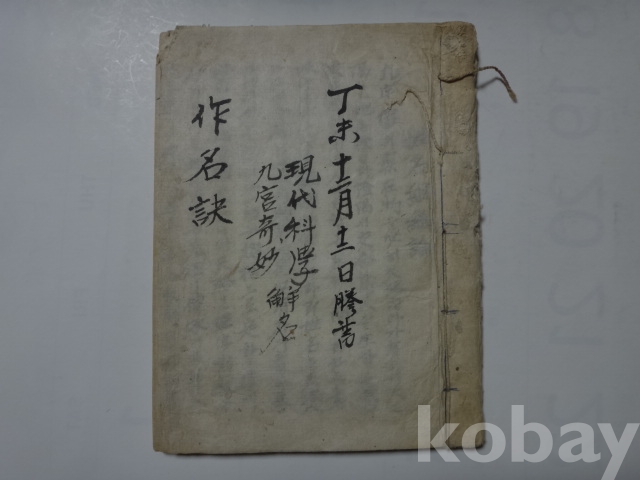 丁未十二月十二日謄書
現代科學
九宮奇妙 解名
作名訣
kobay